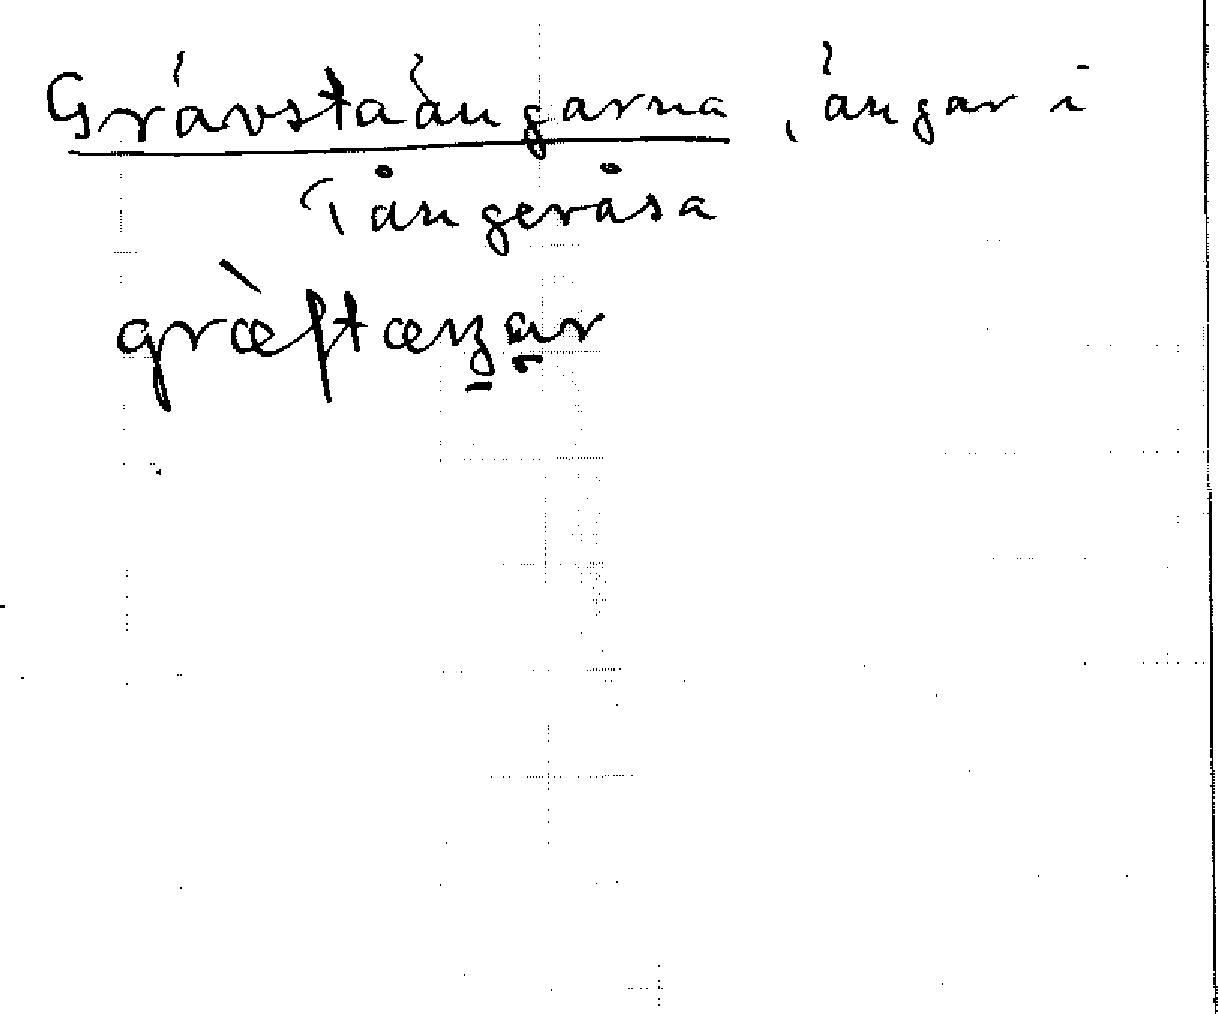 Grävstaängarna, ängar i
Tångeråsa
græ̀ftæŋar